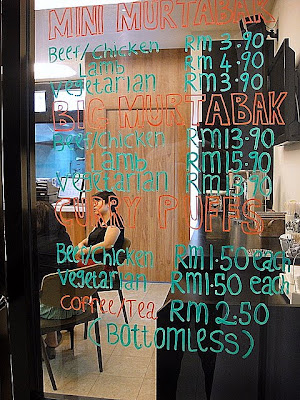 MINI MURTABAK
Beef/Chicken RM 3.90
Lamb RM 4.90
Vegetarian RM 3.90
BIG MURTABAK
Beef/Chicken RM13.90
Lamb RM15.90
Vegetarian RM 13.90
CURRY PUFFS
Beef/Chicken RM1.50 each
Vegetarian RM1.50 each
Coffee/Tea RM 2.50
(Bottomless)